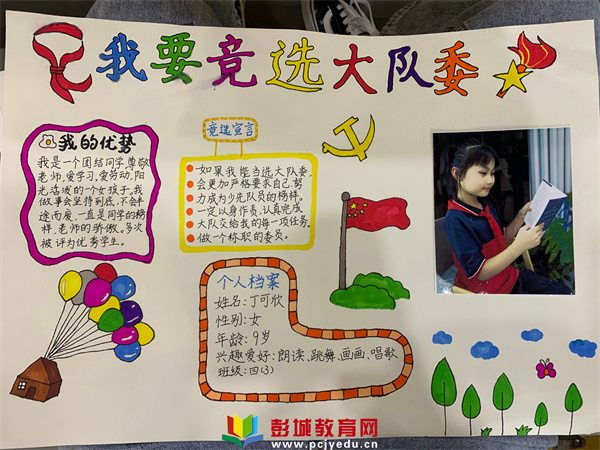 我要竞选大队委
我的优势
我是一个团结同学尊敬
老师,爱学习,爱劳动,阳
光活泼的一个女孩子。我
做事会坚持到底,不会半
途而废,一直是同学的榜
样,老师的骄傲。多次
被评为优秀学生。
竞选宣言
如果我能当选大队委,
会更加严格要求自己,努
力成为少先队员的榜样。
一定以身作责,认真完成
大队交给我的每一项任务,
做一个称职的委员。
个人档案
姓名:丁可欣
性别:女
年龄:9岁
兴趣爱好:朗读、跳舞、画画、唱歌
班级:四(3)
彭城教育网
www.pcjyedu.cn